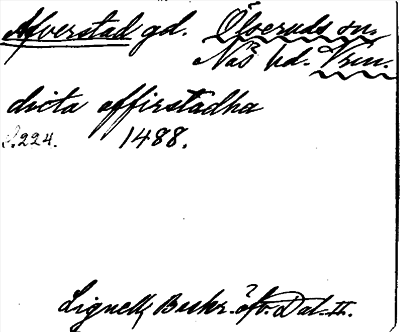 Afverstad gd. Ölseruds sn.
Näs hd. Vrml.
dicta offirstadha
S. 224. 1488.
Lignell, Beskr. öfv. Dal. II.